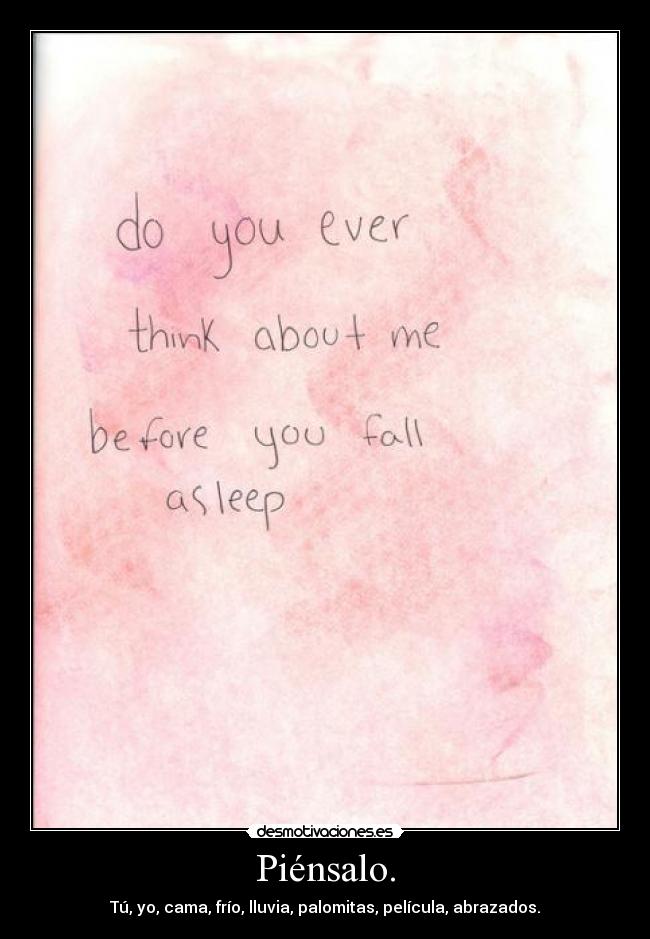 do you ever
think about me
before you fall
asleep
desmotivaciones.es
Piénsalo.
Tú, yo, cama, frío, lluvia, palomitas, película, abrazados.